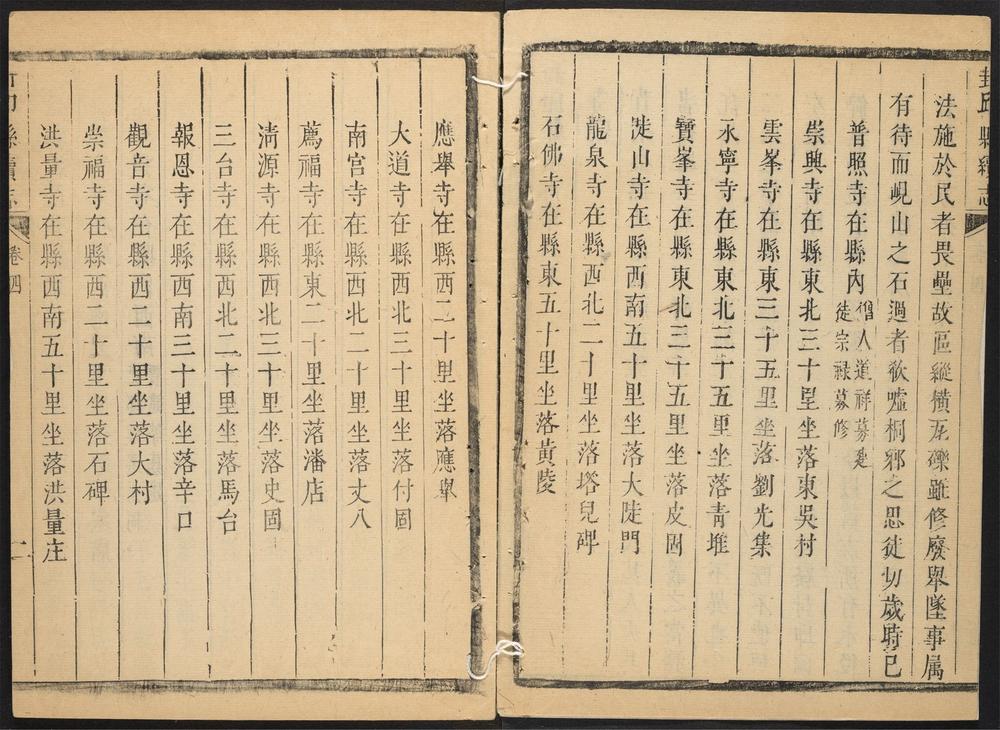 封邱縣續志
法施於民者畏壘故區縱横瓦礫雖修廢舉墜事属
有待而峴山之石過者欷噓桐郷之思徒切歲時已
普照寺在縣内僧人道祥募建徒宗禄募修
崇興寺在縣東北三十里坐落東吳村
雲峯寺在縣東三十五里坐落劉光集
永寧寺在縣東北三十五里坐落青堆
寶峯寺在縣東北三十五里坐落皮固
陡山寺在縣西南五十里坐落大陡門
龍泉寺在縣西北二十里坐落塔兒碑
石佛寺在縣東五十里坐落黄陵
應舉寺在縣西二十里坐落應舉
大道寺在縣西北三十里坐落付固
南宫寺在縣西北二十里坐落丈八
薦福寺在縣東二十里坐落潘店
清源寺在縣西北三十里坐落史固
三台寺在縣西北二十里坐落馬台
報恩寺在縣西南三十里坐落辛口
觀音寺在縣西二十里坐落大村
崇福寺在縣西二十里坐落石碑
洪量寺在縣西南五十里坐落洪量庄
縣續志
卷四
二